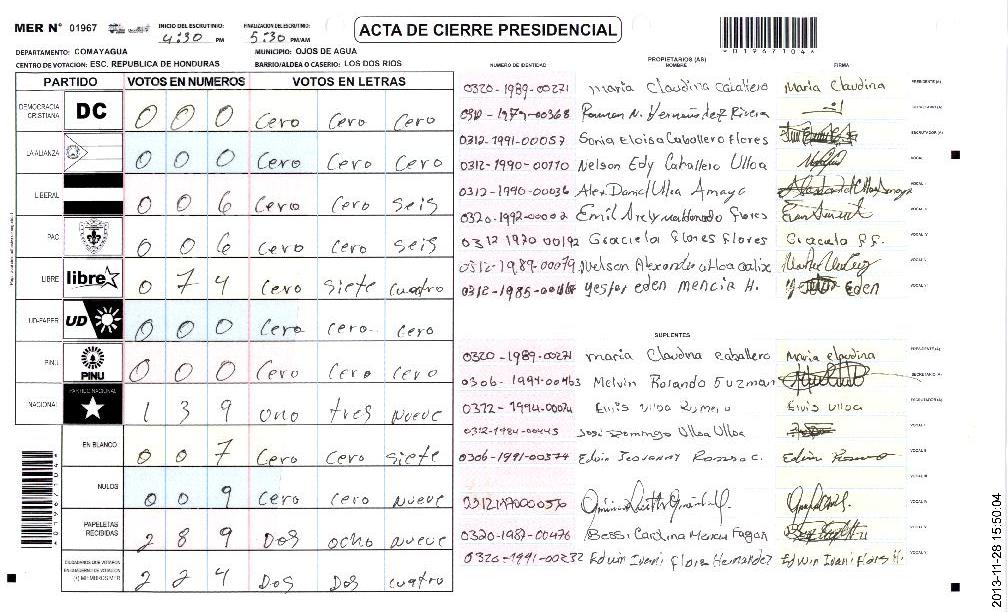 MER N° 01967
INICIO DEL ESCRUTINIO:
4:30 PM
FINALIZACION DEL ESCRUTINIO:
5:30 PM/AM
ACTA DE CIERRE PRESIDENCIAL
01967104
DEPARTAMENTO: COMAYAGUA
MUNICIPIO: OJOS DE AGUA
CENTRO DE VOTACION: ESC. REPUBLICA DE HONDURAS
BARRIO/ALDEA O CASERIO: LOS DOS RIOS
PARTIDO VOTOS EN NUMEROS VOTOS EN LETRAS
DEMOCRACIA CRISTIANA DC 0 0 0 Cero Cero Cero
LA ALIANZA 0 0 0 Cero Cero Cero
LIBERAL 0 0 6 Cero Cero Seis
PAC 0 0 6 Cero Cero Seis
LIBRE libre 0 7 4 Cero Siete cuatro
UD-FAPER UD 0 0 0 Cero Cero Cero
PINU PINU 0 0 0 Cero Cero Cero
NACIONAL PARTIDO NACIONAL 1 3 9 Uno tres Nueve
EN BLANCO 0 0 7 Cero Cero Siete
NULOS 0 0 9 Cero Cero Nueve
PAPELETAS RECIBIDAS 2 8 9 Dos ocho Nueve
CIUDADANOS QUE VOTARON EN CUADERNO DE VOTACION (+) MIEMBROS MER 2 2 4 Dos Dos cuatro
PROPIETARIOS (AS)
NUMERO DE IDENTIDAD NOMBRE FIRMA
0320-1989-00271 maria Claudina Caballero Maria Claudina PRESIDENTE (A)
Hernandez Rivera
0312-1991-00057 Sonia Eloisa Caballero Flores ESCRUTADOR (A)
0312-1990-00170 Nelson Edy Caballero Ulloa VOCAL
0312-1990-00036 Alex Daniel Ulloa Amaya
0320-1992-00002 Emil Arely maldonado Flores
0312 1970 00192 Graciela Flores Flores Graciela F.F.
0312-1989-00079 Nelson Alexander Ulloa
0312-1985- yester eden mencia H. Eden
SUPLENTES
0320-1989-00271 maria Claudina Caballero Maria Claudina PRESIDENTE (A)
0306-1994-00463 Melvin Rolando Guzman SECRETARIO (A)
Elvis Ulloa Romero Elvis Ulloa
0312-1984-00445 Jose Domingo Ulloa Ulloa
0306-1991-00374 Edwin Jeovanny Romero C. Edwin Romero
0320-1987-00476 Bessi Carolina
0320-1991-00232 Edwin Ivani Flores Hernandez Edwin Ivani Flores H.
01967104
2013-11-28 15:50:04